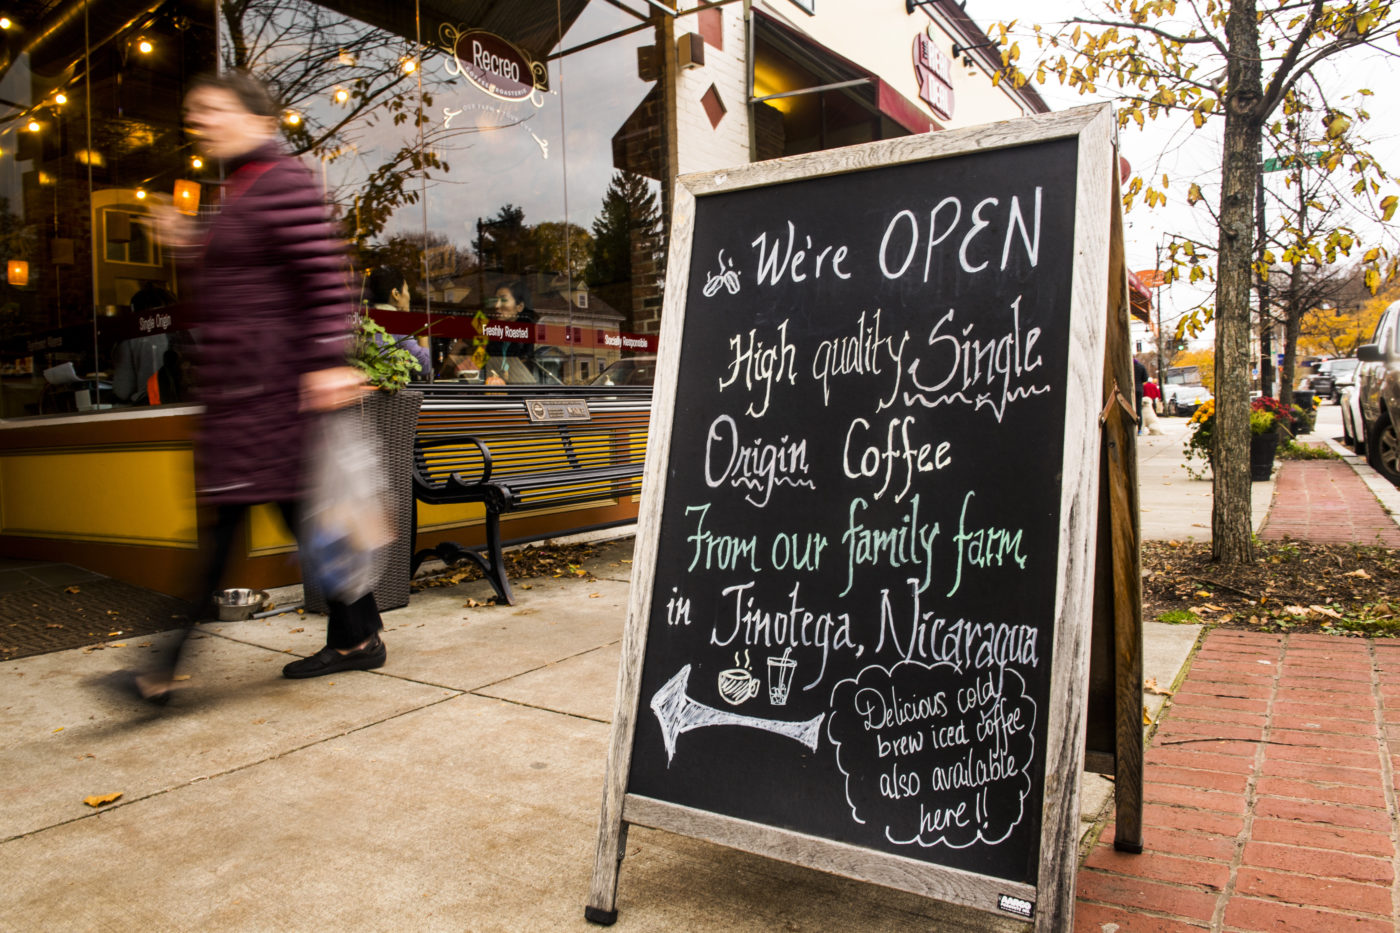 Recreo
COFFEE & ROASTERIE
Single Origin
Freshly Roasted
Socially Responsible
We're OPEN
High quality Single
Origin Coffee
From our family farm
in Jinotega, Nicaragua
Delicious cold
brew iced coffee
also available
here!!
AARCO